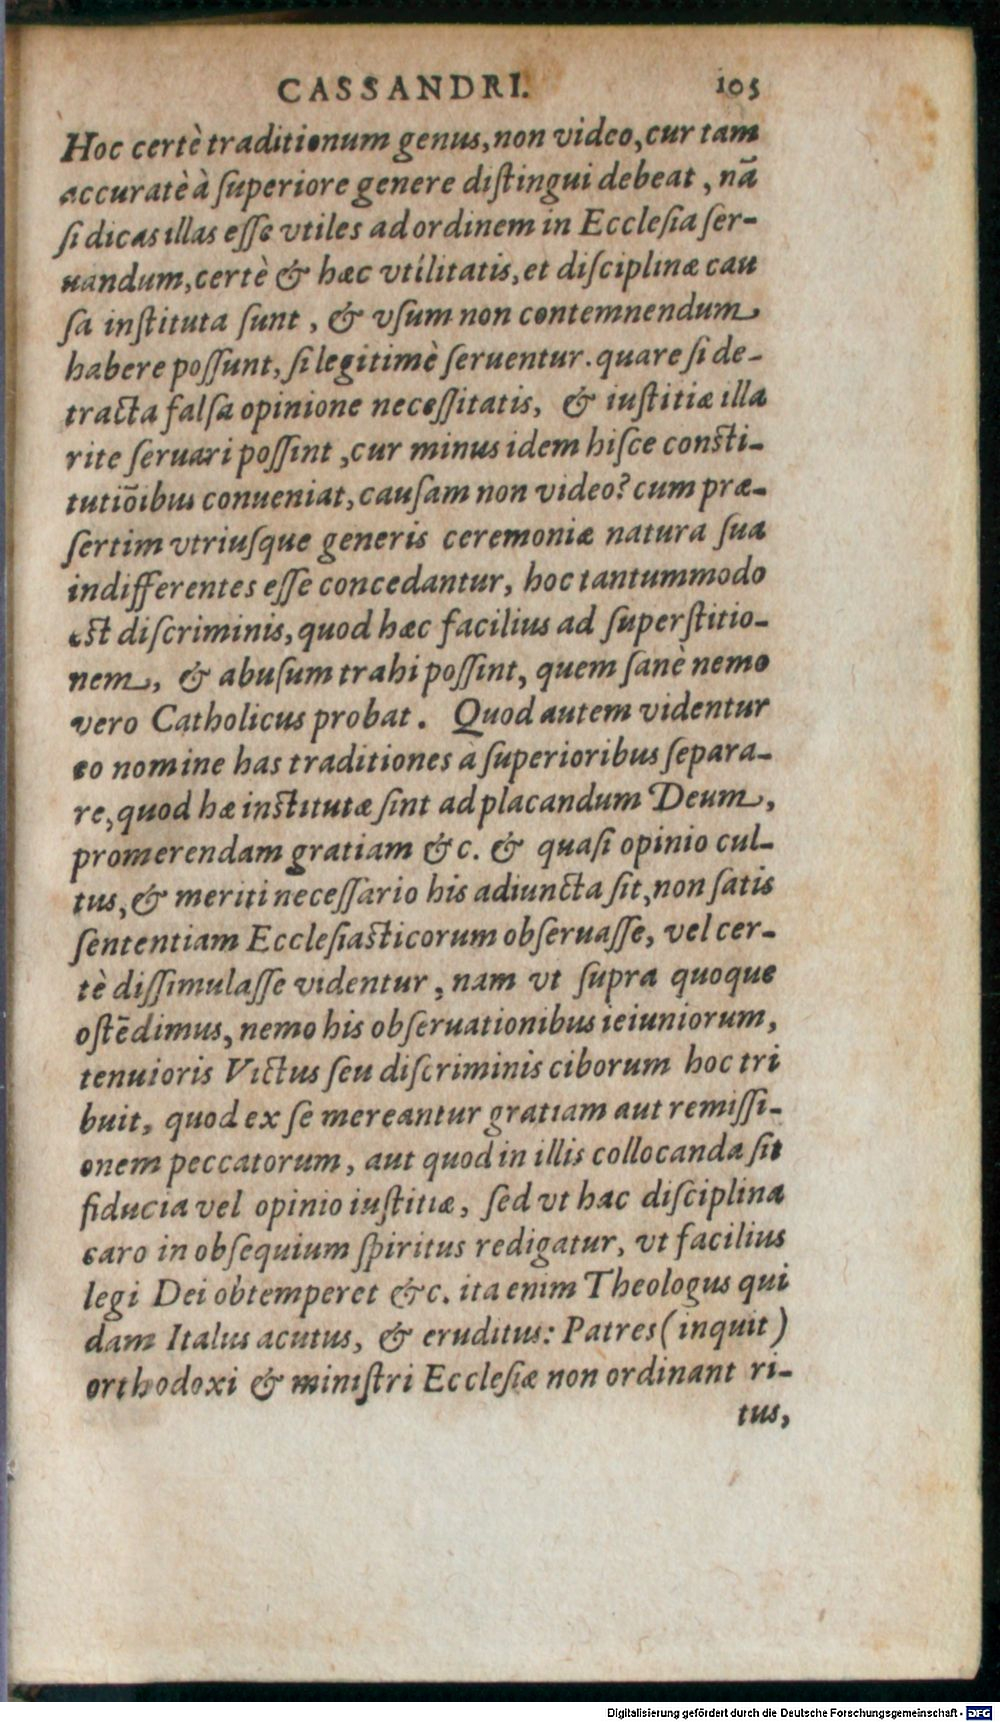 CASSANDRI. 105
Hoc certè traditionum genus, non video, cur tam
accuratè à ſuperiore genere diſtingui debeat, nã
ſi dicas illas eſſe vtiles ad ordinem in Eccleſia ſer-
uandum, certè & hæc vtilitatis, et diſciplinæ cau
ſa inſtituta ſunt, & vſum non contemnendum
habere poſſunt, ſi legitimè ſeruentur. quare ſi de-
tracta falſa opinione neceſſitatis, & iuſtitiæ illa
rite ſeruari poſſint, cur minus idem hiſce conſti-
tutiõibus conueniat, cauſam non video? cum præ-
ſertim vtriuſque generis ceremoniæ natura ſua
indifferentes eſſe concedantur, hoc tantummodo
eſt diſcriminis, quod hæc facilius ad ſuperſtitio-
nem, & abuſum trahi poſſint, quem ſanè nemo
vero Catholicus probat. Quod autem videntur
eo nomine has traditiones à ſuperioribus ſepara-
re, quod hæ inſtitutæ ſint ad placandum Deum,
promerendam gratiam &c. & quaſi opinio cul-
tus, & meriti neceſſario his adiuncta ſit, non ſatis
ſententiam Eccleſiaſticorum obſeruaſſe, vel cer-
tè diſſimulaſſe videntur, nam vt ſupra quoque
oſtẽdimus, nemo his obſeruationibus ieiuniorum,
tenuioris Victus ſeu diſcriminis ciborum hoc tri
buit, quod ex ſe mereantur gratiam aut remiſſi-
onem peccatorum, aut quod in illis collocanda ſit
fiducia vel opinio iuſtitiæ, ſed vt hac diſciplina
caro in obſequium ſpiritus redigatur, vt facilius
legi Dei obtemperet &c. ita enim Theologus qui
dam Italus acutus, & eruditus: Patres (inquit)
orthodoxi & miniſtri Eccleſiæ non ordinant ri-
tus,
Digitalisierung gefördert durch die Deutsche Forschungsgemeinschaft - DFG